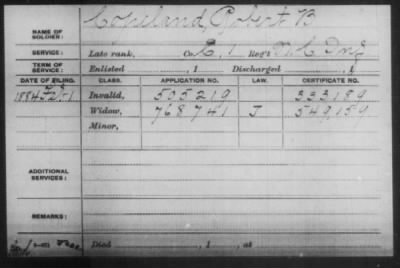 NAME OF SOLDIER: Copeland, Robert B
SERVICE: Late rank, Co. E, 1 Reg't N.C. Inf
TERM OF SERVICE: Enlisted , 1 Discharged , 1
DATE OF FILING. CLASS. APPLICATION NO. LAW. CERTIFICATE NO.
1884 Invalid, 505219 333189
Widow, 768741 J 549,159
Minor,
ADDITIONAL SERVICES:
REMARKS:
Died , 1 , at